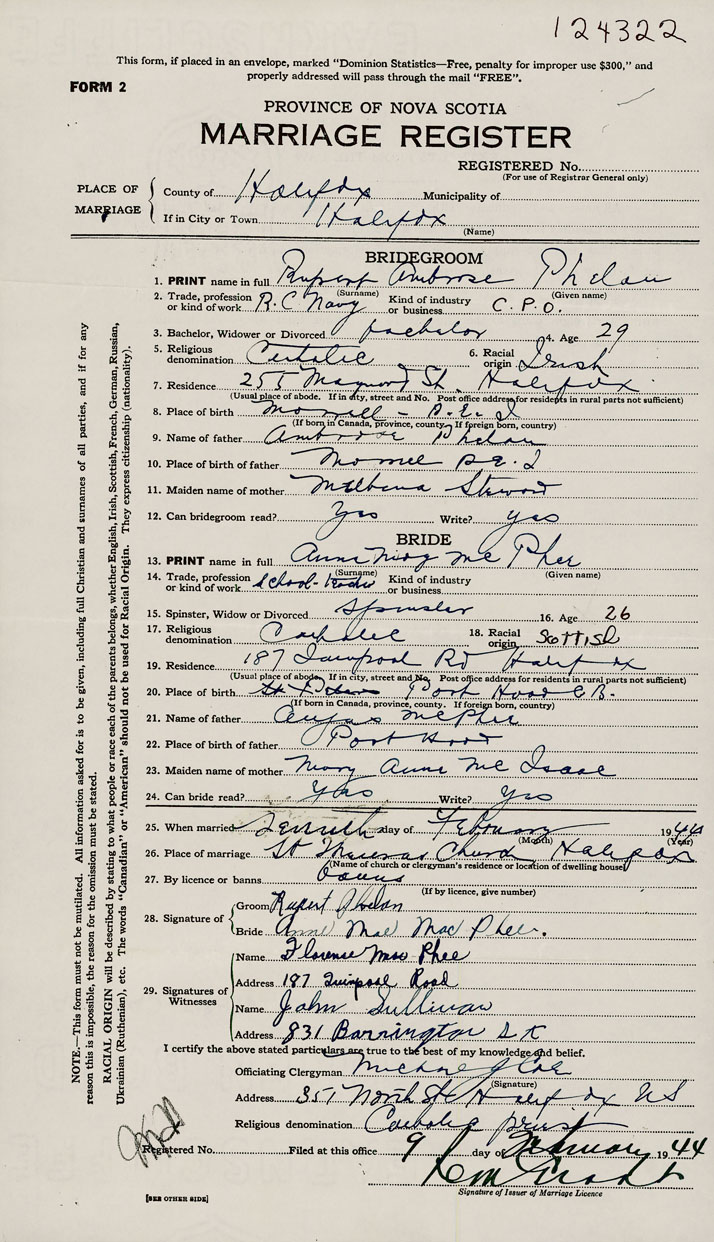 124322
This form, if placed in an envelope, marked "Dominion Statistics—Free, penalty for improper use $300," and
properly addressed will pass through the mail "FREE".
FORM 2
PROVINCE OF NOVA SCOTIA
MARRIAGE REGISTER
REGISTERED No.
(For use of Registrar General only)
PLACE OF MARRIAGE
County of Halifax Municipality of
If in City or Town Halifax
(Name)
BRIDEGROOM
1. PRINT name in full Rupert Ambrose Phelan
(Surname) (Given name)
2. Trade, profession or kind of work R.C Navy Kind of industry or business C.P.O.
3. Bachelor, Widower or Divorced bachelor 4. Age 29
5. Religious denomination Catholic 6. Racial origin Irish
7. Residence 255 Maynard St. Halifax
(Usual place of abode. If in city, street and No. Post office address for residents in rural parts not sufficient)
8. Place of birth Morell - P.E.I
(If born in Canada, province, county. If foreign born, country)
9. Name of father Ambrose Phelan
10. Place of birth of father Morell P.E.I
11. Maiden name of mother Steward
12. Can bridegroom read? Yes Write? yes
BRIDE
13. PRINT name in full Anne May Mc Phee
(Surname) (Given name)
14. Trade, profession or kind of work School-teacher Kind of industry or business
15. Spinster, Widow or Divorced Spinster 16. Age 26
17. Religious denomination Catholic 18. Racial origin Scottish
19. Residence 187 Rd Halifax
(Usual place of abode. If in city, street and No. Post office address for residents in rural parts not sufficient)
20. Place of birth Port Hood C.B.
(If born in Canada, province, county. If foreign born, country)
21. Name of father Angus McPhee
22. Place of birth of father Port Hood
23. Maiden name of mother Mary Anne Mc Isaac
24. Can bride read? Yes Write? Yes
25. When married day of February 1944
(Month) (Year)
26. Place of marriage St Theresas Church Halifax
(Name of church or clergyman's residence or location of dwelling house)
27. By licence or banns banns
(If by licence, give number)
28. Signature of
Groom Rupert Phelan
Bride Anne Mae Mac Phee.
29. Signatures of Witnesses
Name Florence Mac Phee
Address 187 Quinpool Road
Name John Sullivan
Address 831 Barrington St
I certify the above stated particulars are true to the best of my knowledge and belief.
Officiating Clergyman Michael J Cole
(Signature)
Address 351 North St Halifax NS
Religious denomination Catholic priest
Registered No. Filed at this office 9 day of February 1944
Signature of Issuer of Marriage Licence
[SEE OTHER SIDE]
NOTE.—This form must not be mutilated. All information asked for is to be given, including full Christian and surnames of all parties, and if for any
reason this is impossible, the reason for the omission must be stated.
RACIAL ORIGIN will be described by stating to what people or race each of the parents belongs, whether English, Irish, Scottish, French, German, Russian,
Ukrainian (Ruthenian), etc. The words "Canadian" or "American" should not be used for Racial Origin. They express citizenship (nationality).